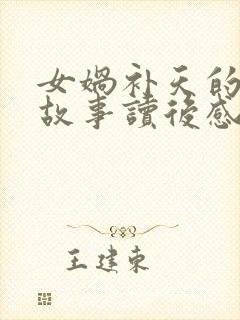 女媧补天的
故事讀後感
王建東